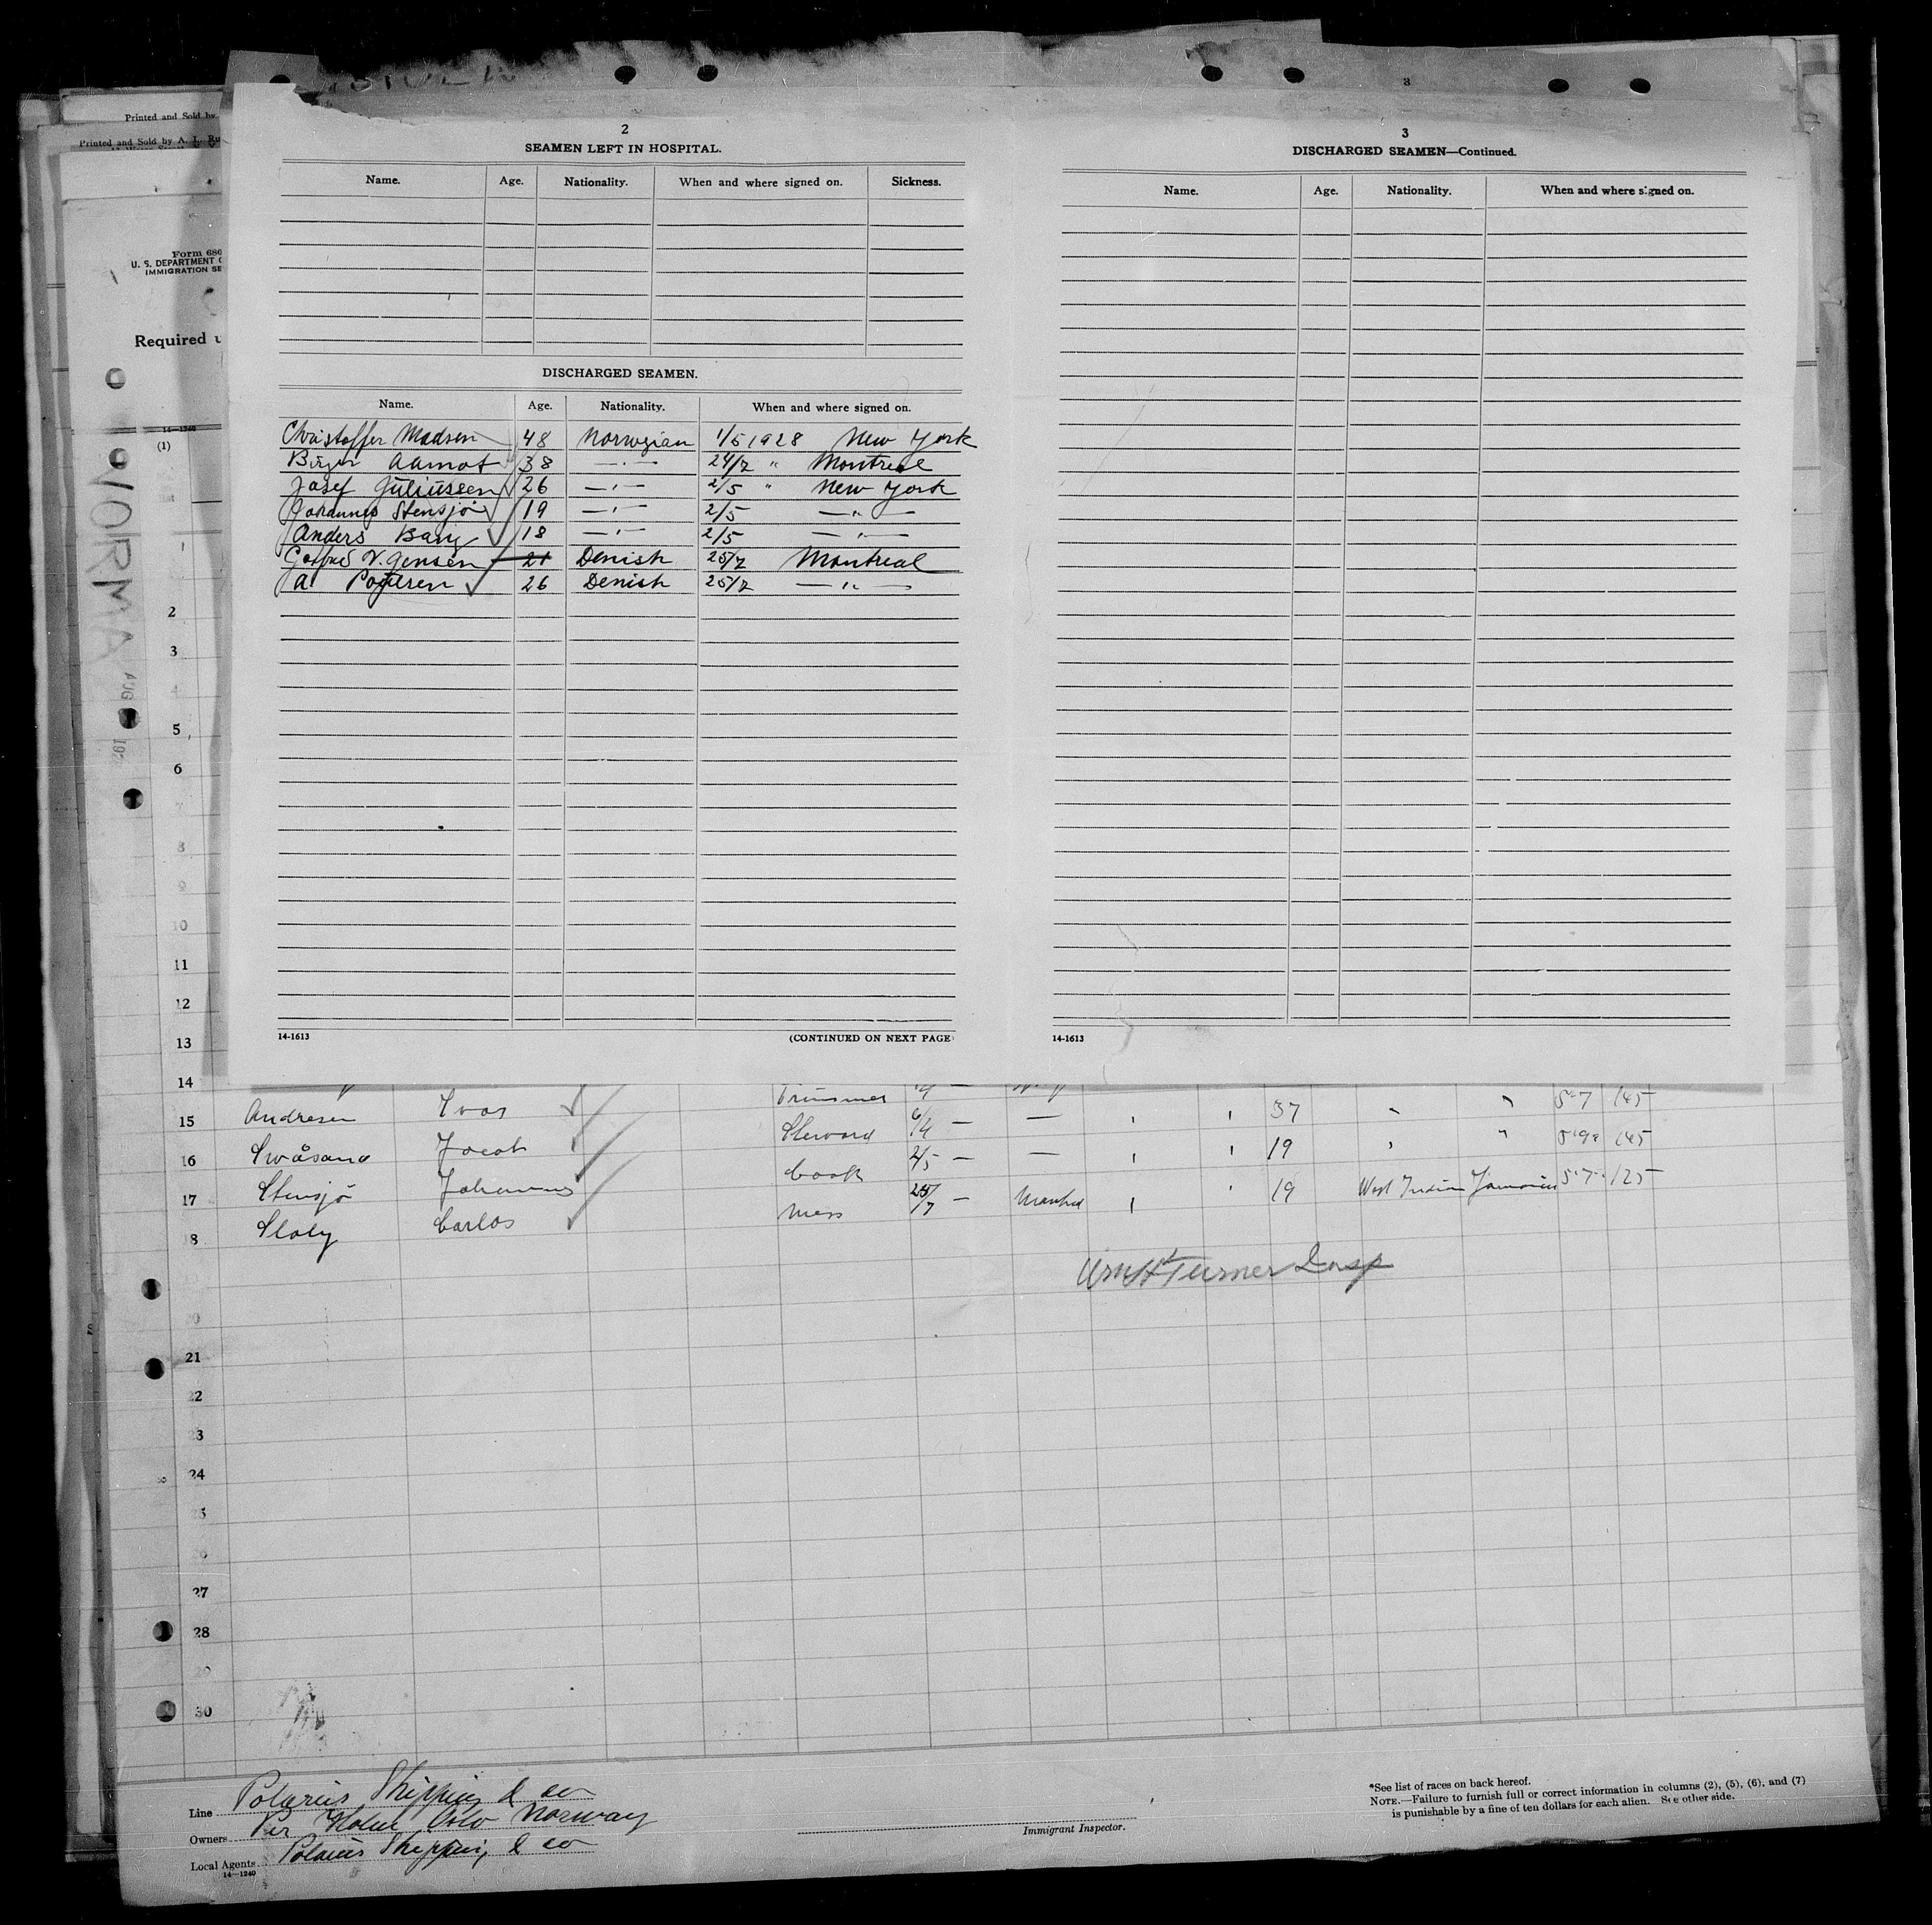 Printed and Sold by
Printed and Sold by A. L. Ru
Form 686
U. S. DEPARTMENT
IMMIGRATION SE
Required u
14—1240
(1)
NORMA
AUG
2
SEAMEN LEFT IN HOSPITAL.
Name. Age. Nationality. When and where signed on. Sickness.
DISCHARGED SEAMEN.
Name. Age. Nationality. When and where signed on.
Christoffer Madsen 48 Norwegian 1/5 1928 New York
Birger Aamot 38 —"— 24/7 " Montreal
Josef Juliussen 26 —"— 2/5 " New York
Johannes Stensjö 19 —"— 2/5 —"—
Anders Bang 18 —"— 2/5 —"—
V. Jensen 21 Denish 25/7 Montreal
A Poulsen 26 Denish 25/7 —"—
14-1613 (CONTINUED ON NEXT PAGE)
3
3
DISCHARGED SEAMEN—Continued.
Name. Age. Nationality. When and where signed on.
14-1613
1
2
3
4
5
6
7
8
9
10
11
12
13
14 Trimmer
15 Andresen Ivar Steward 6/4 — — " " 37 " " 5'7 145
16 Svåsand Jacob Cook 2/5 — — " " 19 " " 5'9 145
17 Stensjö Johannes Mess 25/7 — Montreal " " 19 West Indian Jamaican 5'7 125
18 Sloly Carlos
Wm H Turner Insp
20
21
22
23
24
25
26
27
28
29
30
Line Polarus Shipping & co
Owners Per Holm Oslo Norway
Local Agents Polarus Shipping & co
14—1240
Immigrant Inspector.
*See list of races on back hereof.
NOTE.—Failure to furnish full or correct information in columns (2), (5), (6), and (7)
is punishable by a fine of ten dollars for each alien. See other side.